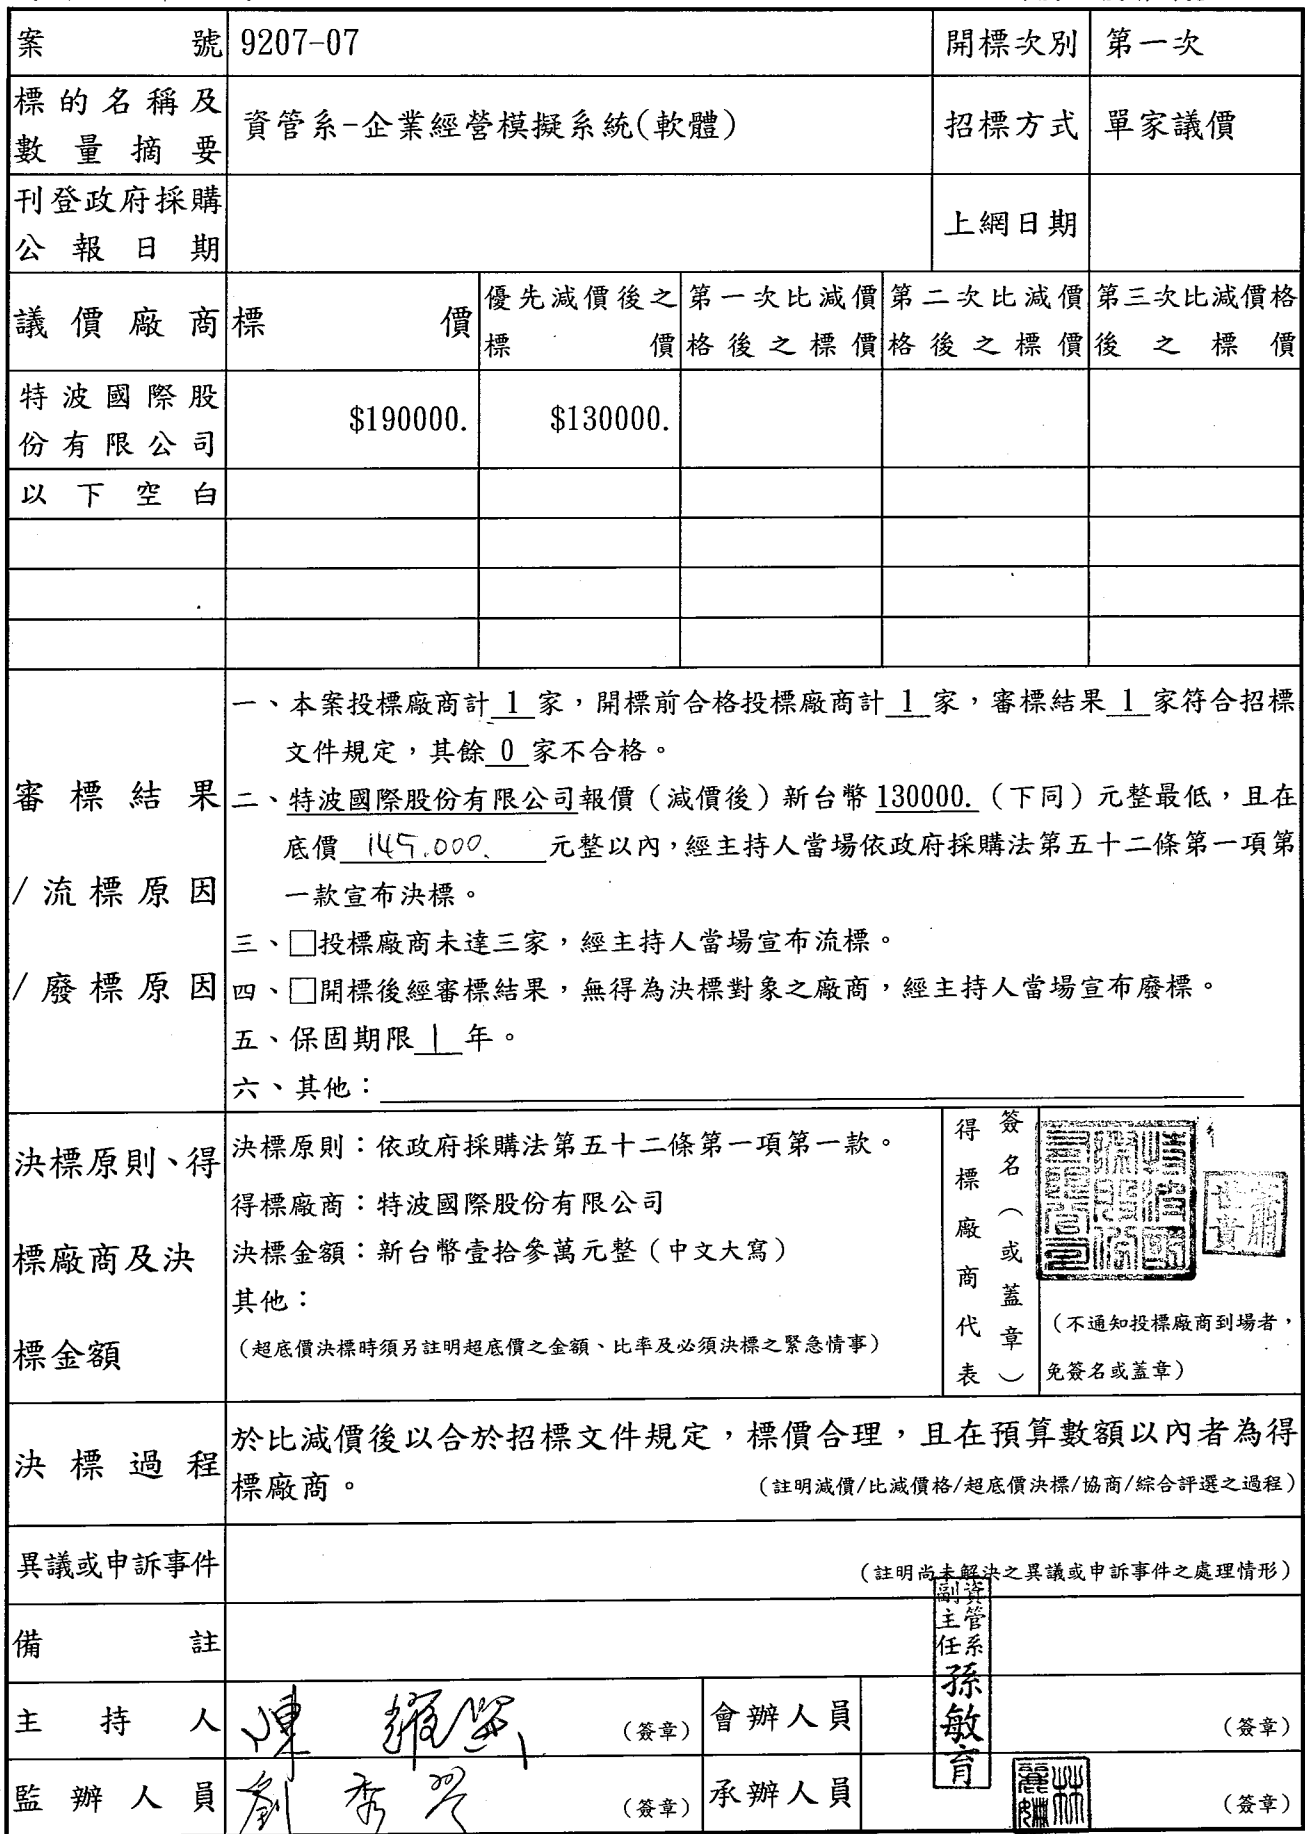 案號 9207-07 開標次別 第一次
標的名稱及
數量摘要
資管系-企業經營模擬系統(軟體)
招標方式 單家議價
刊登政府採購
公報日期
上網日期
議價廠商 標價
優先減價後之
標價
第一次比減價
格後之標價
第二次比減價
格後之標價
第三次比減價格
後之標價
特波國際股
份有限公司
$190000. $130000.
以下空白
審標結果
/流標原因
/廢標原因
一、本案投標廠商計 1 家，開標前合格投標廠商計 1 家，審標結果 1 家符合招標
文件規定，其餘 0 家不合格。
二、特波國際股份有限公司報價（減價後）新台幣 130000.（下同）元整最低，且在
底價 145,000. 元整以內，經主持人當場依政府採購法第五十二條第一項第
一款宣布決標。
三、□投標廠商未達三家，經主持人當場宣布流標。
四、□開標後經審標結果，無得為決標對象之廠商，經主持人當場宣布廢標。
五、保固期限 1 年。
六、其他：
決標原則、得
標廠商及決
標金額
決標原則：依政府採購法第五十二條第一項第一款。
得標廠商：特波國際股份有限公司
決標金額：新台幣壹拾參萬元整（中文大寫）
其他：
（超底價決標時須另註明超底價之金額、比率及必須決標之緊急情事）
得標廠商代表
簽名（或蓋章）
特波國
際股份
有限公司
（不通知投標廠商到場者，
免簽名或蓋章）
決標過程
於比減價後以合於招標文件規定，標價合理，且在預算數額以內者為得
標廠商。
（註明減價/比減價格/超底價決標/協商/綜合評選之過程）
異議或申訴事件
（註明尚未解決之異議或申訴事件之處理情形）
備註
資管系
副主任
孫敏育
主持人 陳 （簽章） 會辦人員 （簽章）
監辦人員 劉秀 （簽章） 承辦人員 林麗 （簽章）